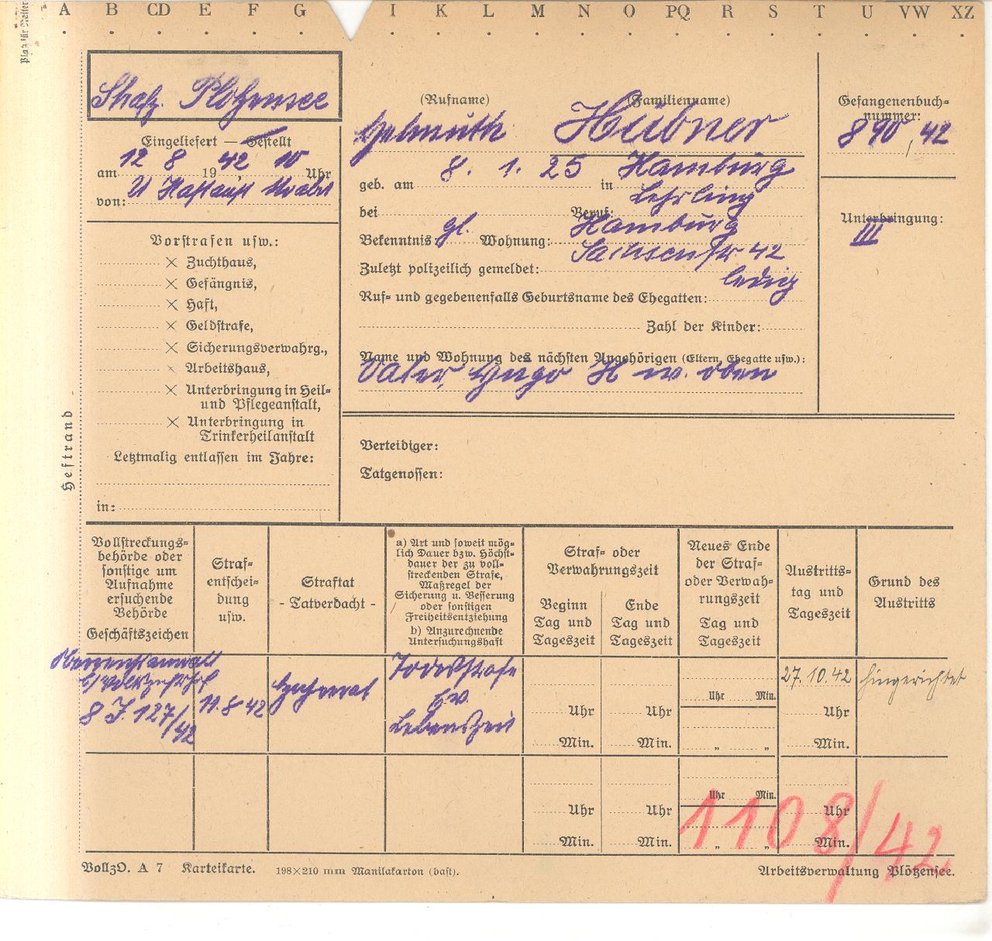 A B CD E F G I K L M N O PQ R S T U VW XZ
Strafg. Plötzensee
Eingeliefert — Gestellt
am 12 8 1942 10 Uhr
von: U Haftanst Moabit
Vorstrafen usw.:
× Zuchthaus,
× Gefängnis,
× Haft,
× Geldstrafe,
× Sicherungsverwahrg.,
× Arbeitshaus,
× Unterbringung in Heil-
und Pflegeanstalt,
× Unterbringung in
Trinkerheilanstalt
Letztmalig entlassen im Jahre:
in:
Heftrand
(Rufname) (Familienname)
Helmuth Hübner
geb. am 8. 1. 25 in Hamburg
bei Beruf: Lehrling
Bekenntnis gl. Wohnung: Hamburg
Sachsenstr 42
Zuletzt polizeilich gemeldet:
ledig
Ruf- und gegebenenfalls Geburtsname des Ehegatten:
Zahl der Kinder:
Name und Wohnung des nächsten Angehörigen (Eltern, Ehegatte usw.):
Vater, Hugo H w. oben
Gefangenenbuch-
nummer:
890, 42
Unterbringung:
III
Verteidiger:
Tatgenossen:
Vollstreckungs-
behörde oder
sonstige um
Aufnahme
ersuchende
Behörde
Geschäftszeichen
Straf-
entschei-
dung
usw.
Straftat
- Tatverdacht -
a) Art und soweit mög-
lich Dauer bzw. Höchst-
dauer der zu voll-
streckenden Strafe,
Maßregel der
Sicherung u. Besserung
oder sonstigen
Freiheitsentziehung
b) Anzurechnende
Untersuchungshaft
Straf- oder
Verwahrungszeit
Beginn
Tag und
Tageszeit
Ende
Tag und
Tageszeit
Neues Ende
der Straf-
oder Verwah-
rungszeit
Tag und
Tageszeit
Austritts-
tag und
Tageszeit
Grund des
Austritts
Oberreichsanwalt
b/Volksgerichtshof
8 J. 127/
42
11.8 42
Hochverrat
Todesstrafe
Ev.
Lebenszeit
27.10.42 hingerichtet
Uhr Min.
Uhr Uhr Uhr
Min. Min. „ „ Min.
Uhr Min.
Uhr Uhr Uhr
Min. Min. „ „ Min.
1108/42
VollzO. A 7 Karteikarte. 198×210 mm Manilakarton (hast). Arbeitsverwaltung Plötzensee.